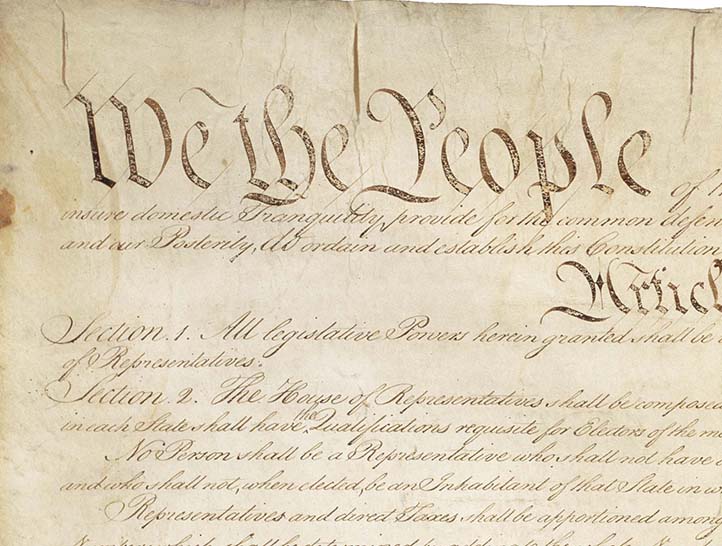 We the People of
insure domestic Tranquility, provide for the common defen
and our Posterity, do ordain and establish this Constitution
Articl
Section. 1. All legislative Powers herein granted shall be
of Representatives.
Section. 2. The House of Representatives shall be composed
in each State shall have the Qualifications requisite for Electors of the mo
No Person shall be a Representative who shall not have
and who shall not, when elected, be an Inhabitant of that State in w
Representatives and direct Taxes shall be apportioned among